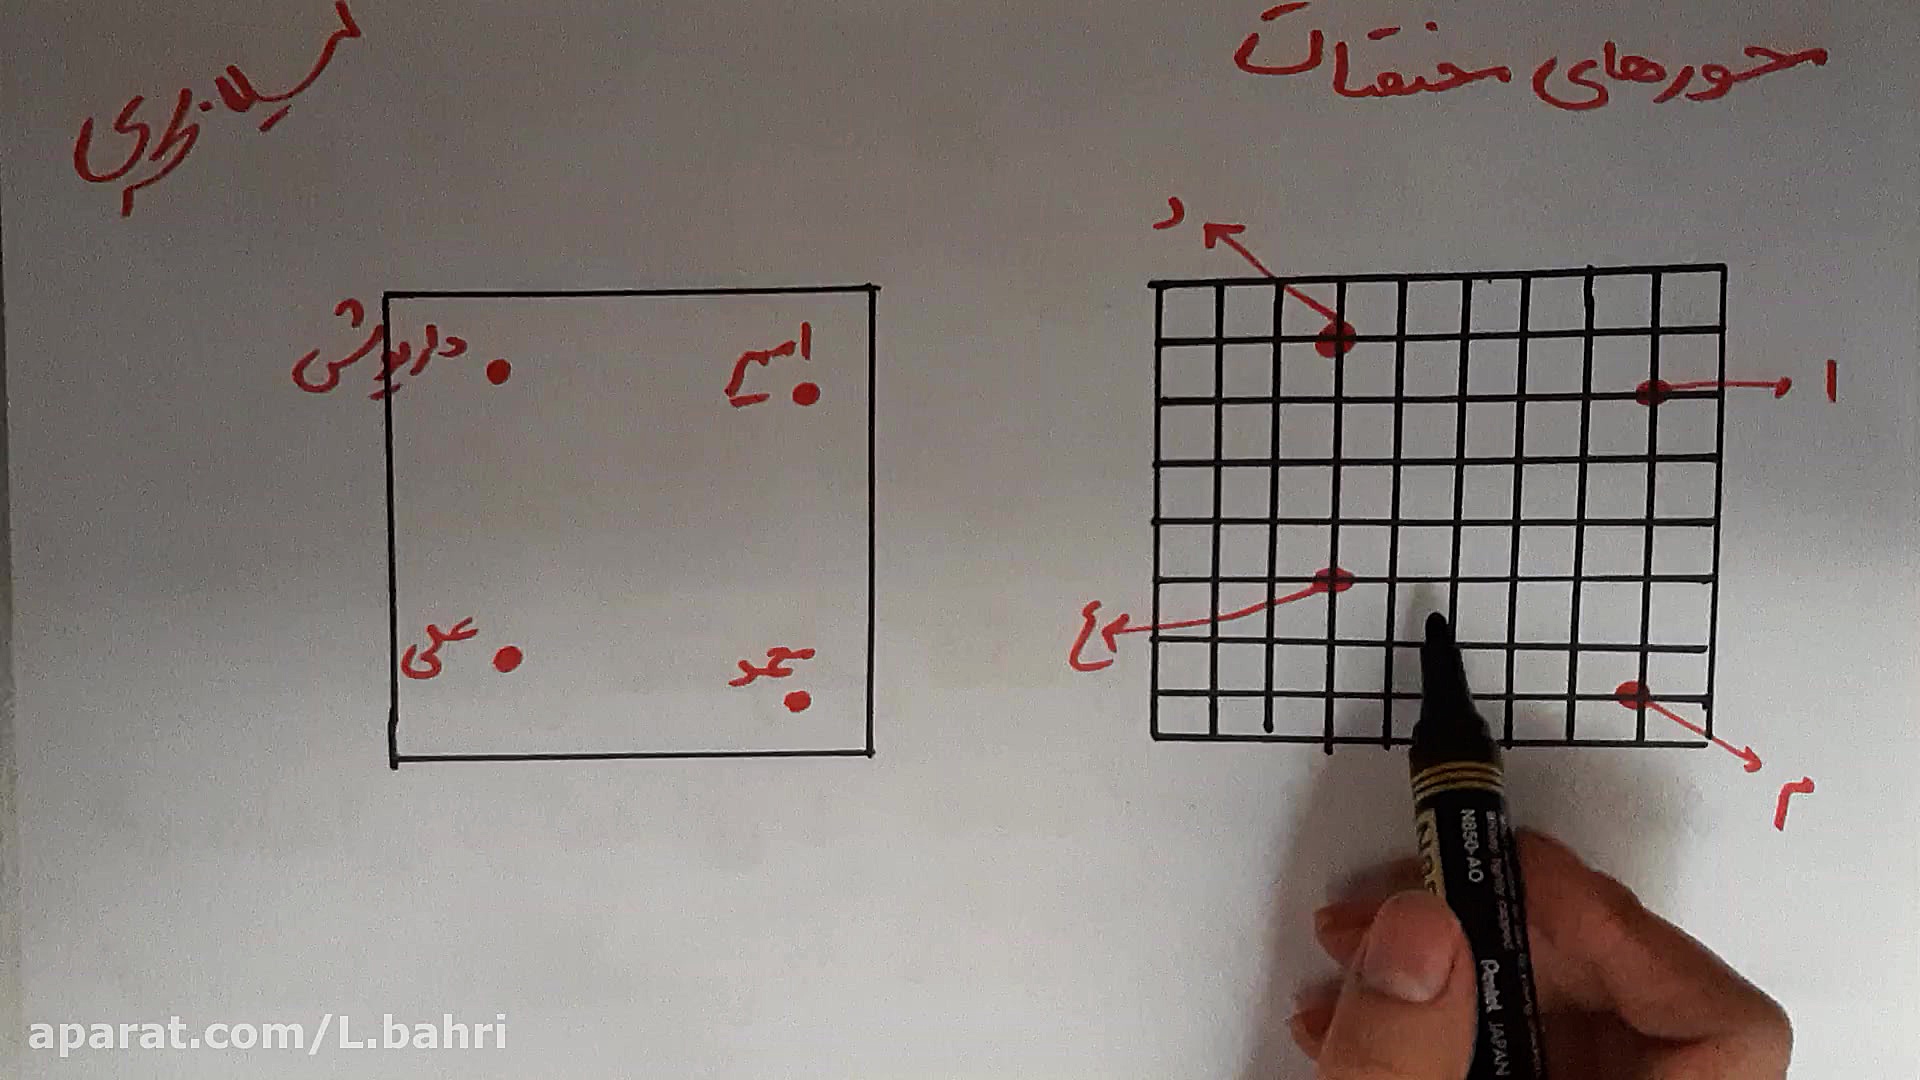 محورهای مختصات
لیلا بحری
د
ا
ع
م
داریوش
امیر
علی
محمد
N850-AO
Pentel JAPAN
aparat.com/L.bahri